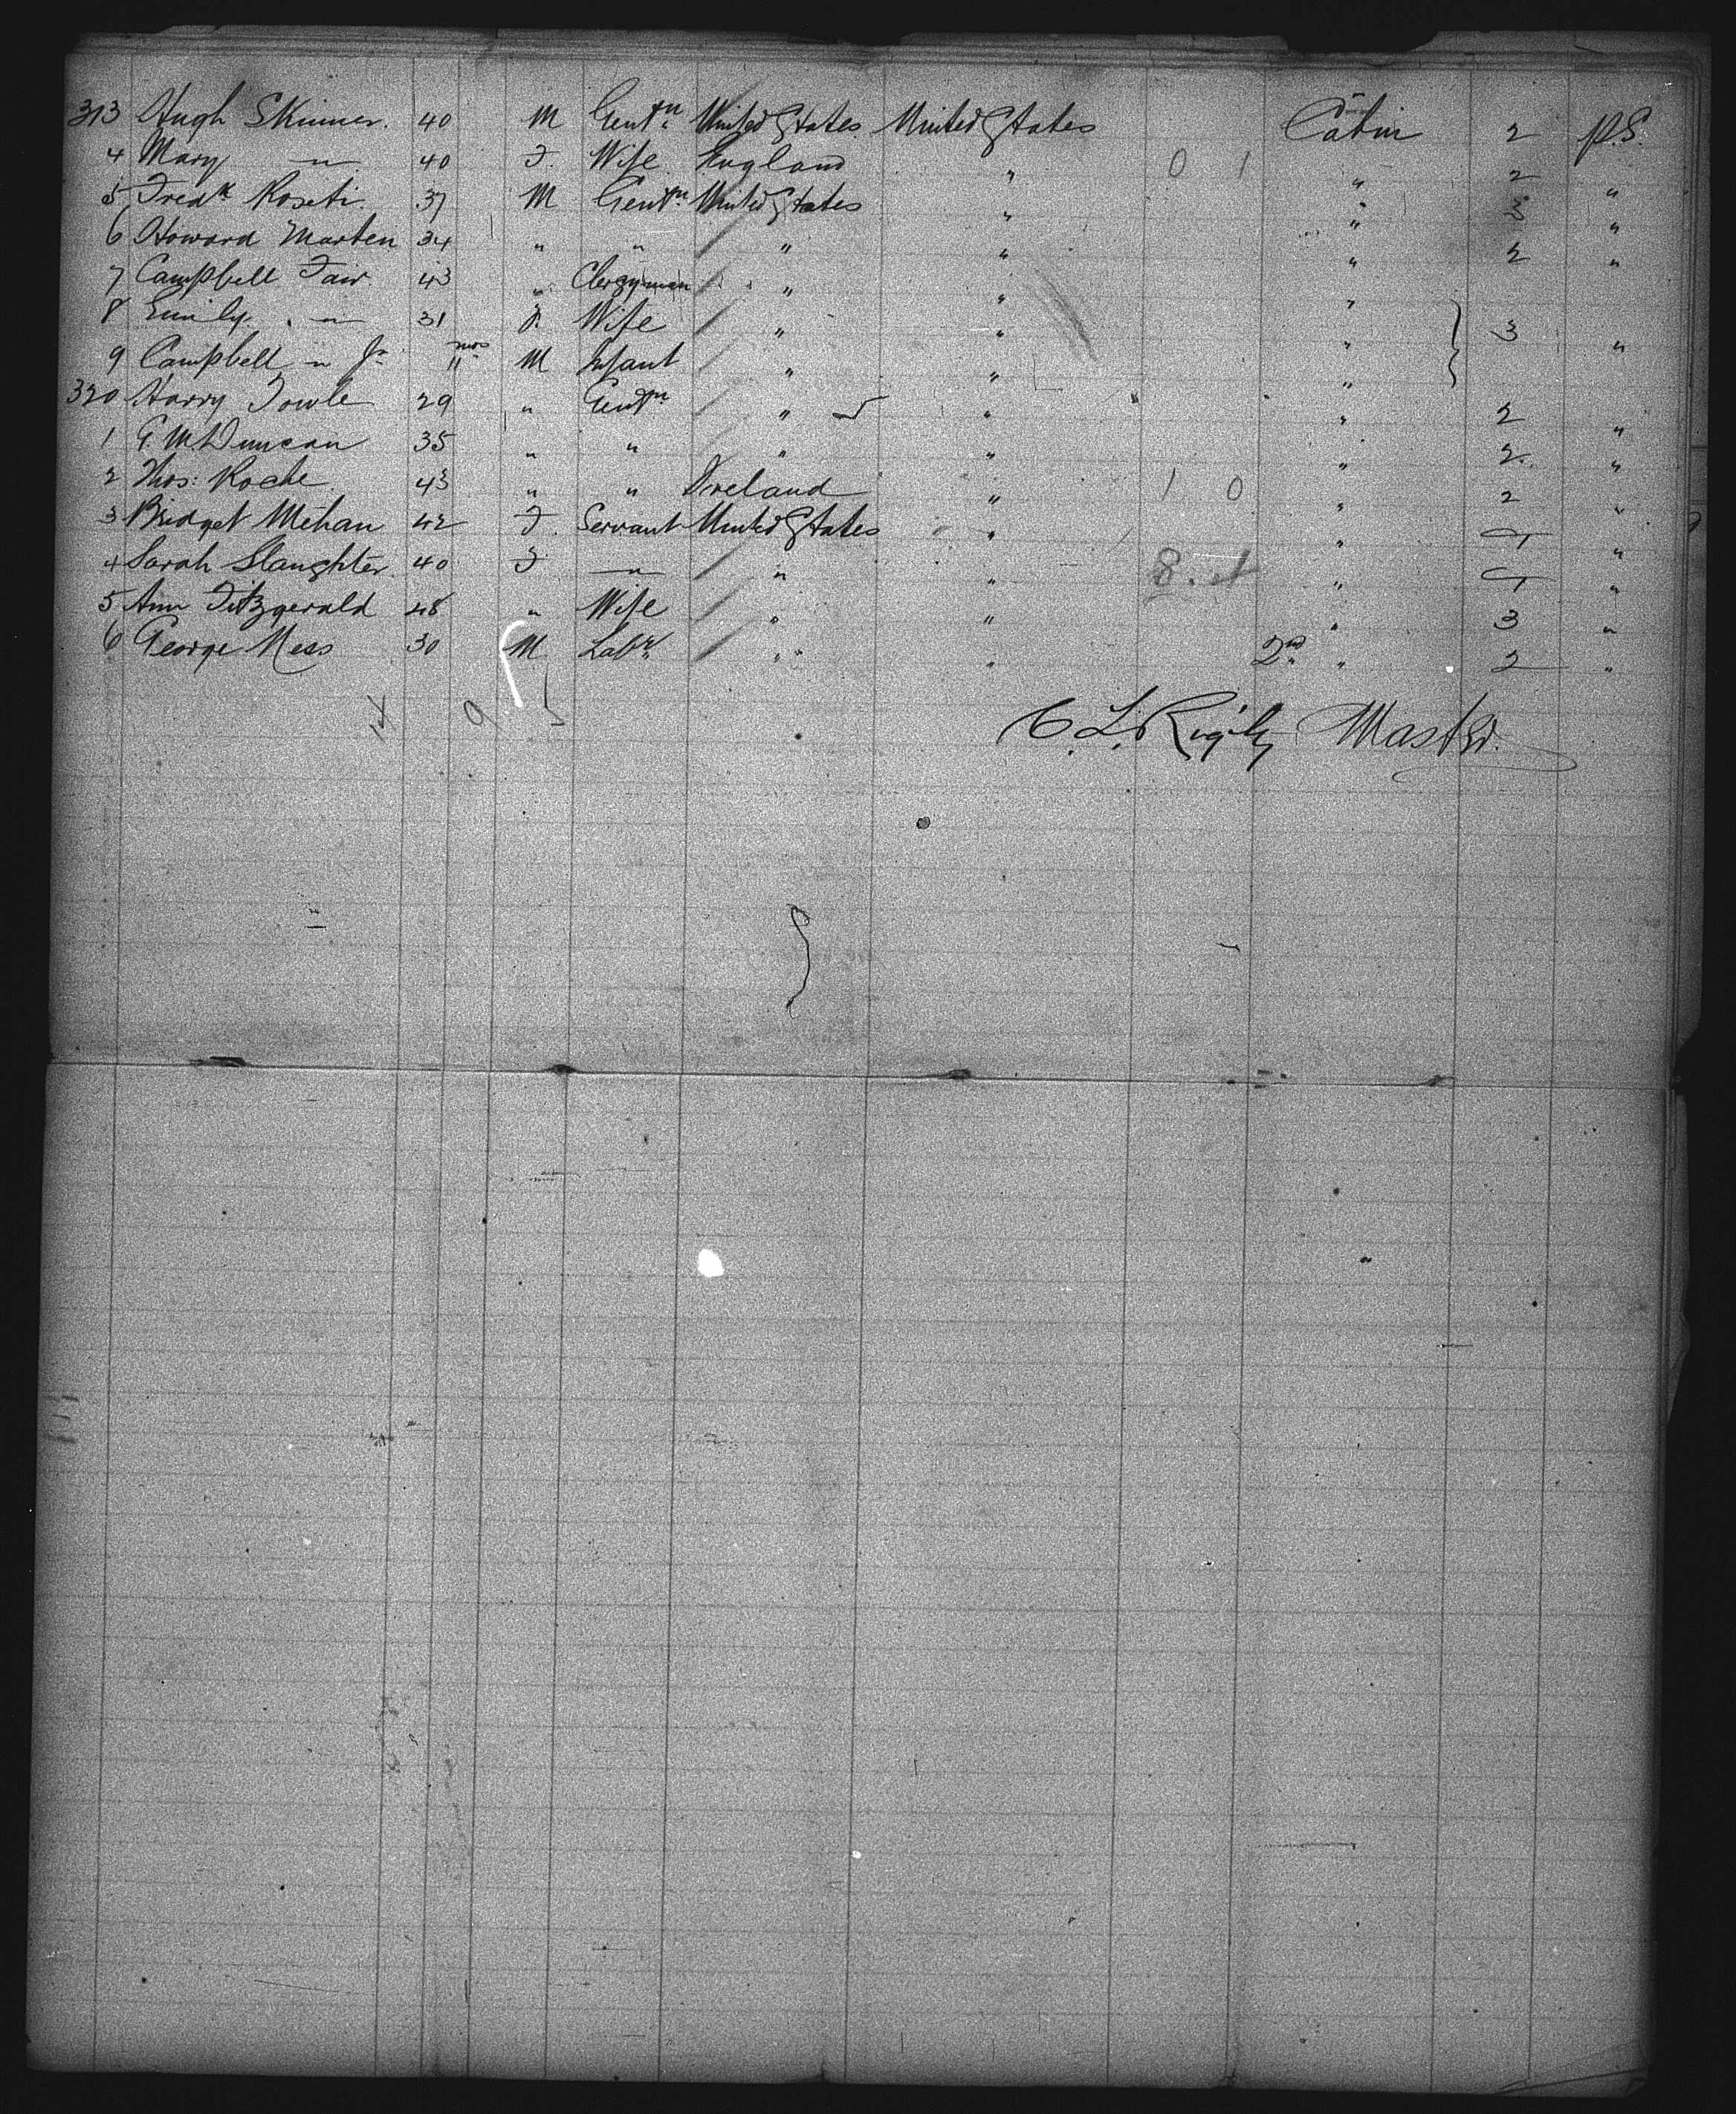 313 Hugh Skinner. 40 M Gentn United States United States Cabin 2 P.S.
4 Mary " 40 F. Wife England " 0 1 " 2 "
5 Fredk Roseti. 37 M Gentn United States " " 3 "
6 Howard Marten 34 " " " " " 2 "
7 Campbell Fair 43 " Clergyman " " "
8 Emily " 31 F. Wife " " " 3 "
9 Campbell " Jr 11 mos M Infant " " "
320 Harry Fowle 29 " Gentn " " " 2 "
1 G. M. Duncan 35 " " " " " 2 "
2 Thos: Roche 43 " " Ireland " 1 0 " 2 "
3 Bridget Mehan 42 F. Servant United States " " 1 "
4 Sarah Slaughter 40 F " " " " 1 "
5 Ann Fitzgerald 48 " Wife " " " 3 "
6 George Ness 30 M Labr " " 2nd " 2 "
9 5
C. L. Master.